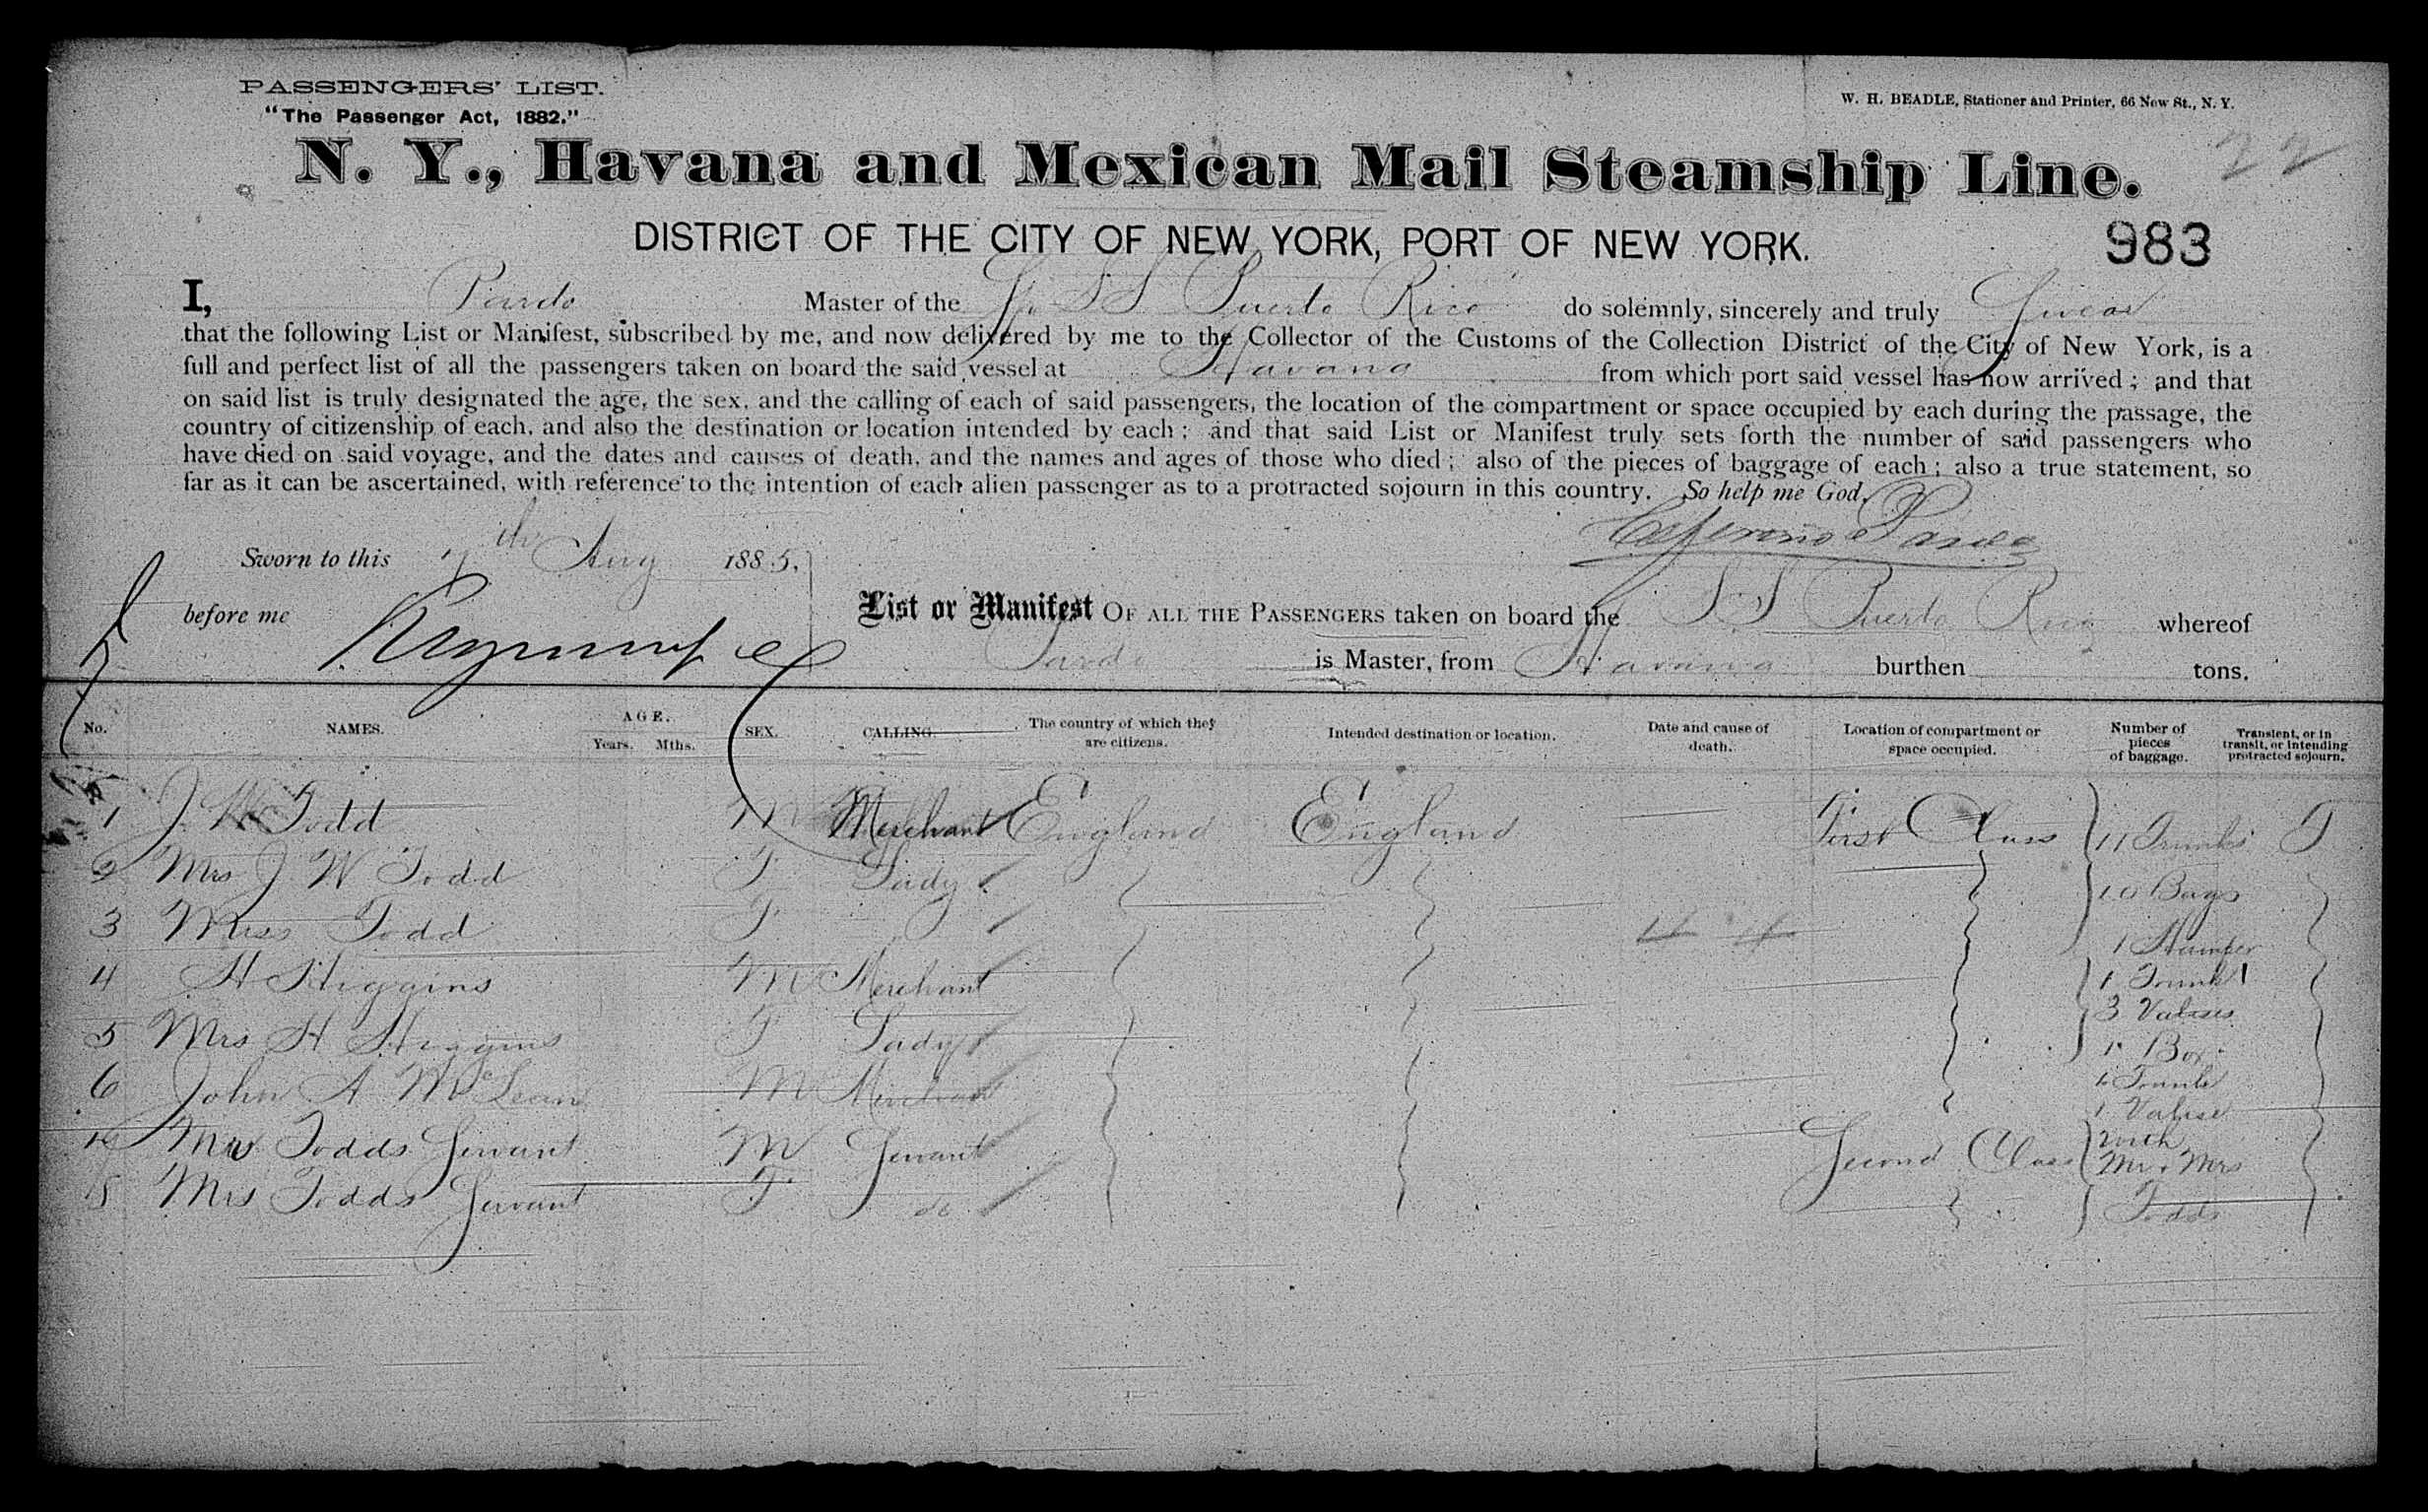 PASSENGERS' LIST.
"The Passenger Act, 1882."
W. H. BEADLE, Stationer and Printer, 66 New St., N. Y.
22
N. Y., Havana and Mexican Mail Steamship Line.
DISTRICT OF THE CITY OF NEW YORK, PORT OF NEW YORK.
983
I, Pardo Master of the Sp SS Puerto Rico do solemnly, sincerely and truly Swear
that the following List or Manifest, subscribed by me, and now delivered by me to the Collector of the Customs of the Collection District of the City of New York, is a
full and perfect list of all the passengers taken on board the said vessel at Havana from which port said vessel has now arrived; and that
on said list is truly designated the age, the sex, and the calling of each of said passengers, the location of the compartment or space occupied by each during the passage, the
country of citizenship of each, and also the destination or location intended by each; and that said List or Manifest truly sets forth the number of said passengers who
have died on said voyage, and the dates and causes of death, and the names and ages of those who died; also of the pieces of baggage of each; also a true statement, so
far as it can be ascertained, with reference to the intention of each alien passenger as to a protracted sojourn in this country. So help me God.
Ceferino Pardo
Sworn to this 7th Aug 1885,
before me
List or Manifest OF ALL THE PASSENGERS taken on board the SS Puerto Rico whereof
Pardo is Master, from Havana burthen tons.
No. NAMES. AGE. Years. Mths. SEX. CALLING. The country of which they are citizens. Intended destination or location. Date and cause of death. Location of compartment or space occupied. Number of pieces of baggage. Transient, or in transit, or intending protracted sojourn.
1 J. W. Todd M Merchant England England First Class 11 Trunks T
2 Mrs J W Todd F Lady 10 Bags
3 Miss Todd F 1 Hamper
4 H Higgins M Merchant 1 Trunk
3 Valises
5 Mrs H Higgins F Lady 1 Box
6 John A McLean M Merchant 1 Trunk
1 Valise
Todds Servant M Servant Second Class with
Mr & Mrs
8 Mrs Todds Servant F do Todds